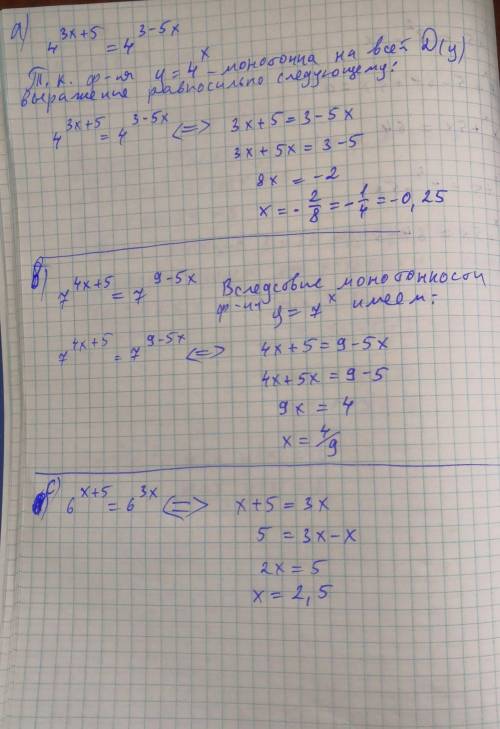 a) 4^{3x+5} = 4^{3-5x}
Т. к. ф-ия y = 4^x - монотонна на всей D(y)
выражение равносильно следующему:
4^{3x+5} = 4^{3-5x} <=> 3x+5 = 3-5x
3x + 5x = 3-5
8x = -2
x = -2/8 = -1/4 = -0,25
b) 7^{4x+5} = 7^{9-5x} Вследствие монотонности
ф-ии y = 7^x имеем:
7^{4x+5} = 7^{9-5x} <=> 4x+5 = 9-5x
4x+5x = 9-5
9x = 4
x = 4/9
c) 6^{x+5} = 6^{3x} <=> x+5 = 3x
5 = 3x-x
2x = 5
x = 2,5